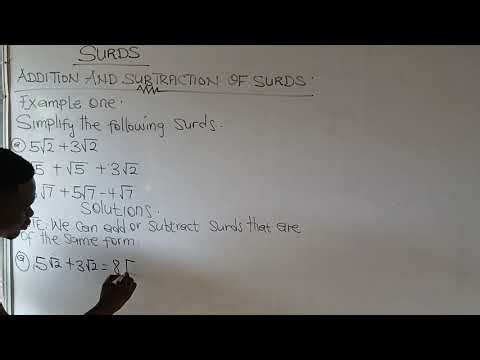 SURDS
ADDITION AND SUBTRACTION OF SURDS.
Example one.
Simplify the following surds.
(a) 5√2 + 3√2
√5 + √5 + 3√2
√7 + 5√7 - 4√7
Solutions.
TE: We can add or subtract surds that are
of the same form.
(a) 5√2 + 3√2 = 8√